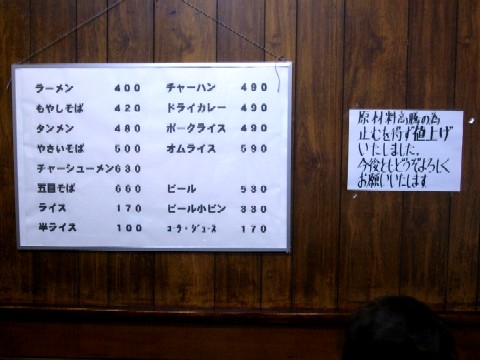 ラーメン 400
もやしそば 420
タンメン 480
やさいそば 500
チャーシューメン 630
五目そば 660
ライス 170
半ライス 100
チャーハン 490
ドライカレー 490
ポークライス 490
オムライス 590
ビール 530
ビール小ビン 330
コーラ・ジュース 170
原材料高騰の為
止むを得ず値上げ
いたしました。
今後ともどうぞよろしく
お願いいたします